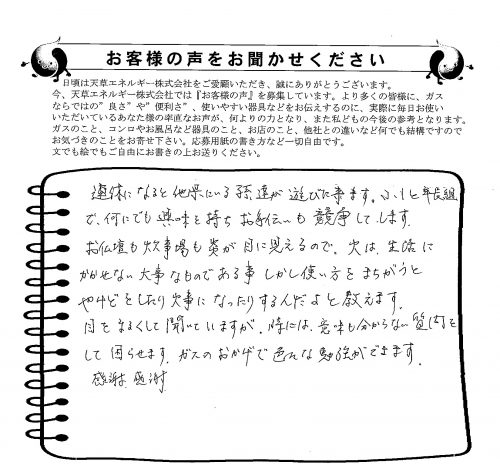 お客様の声をお聞かせください
日頃は天草エネルギー株式会社をご愛顧いただき、誠にありがとうございます。
今、天草エネルギー株式会社では『お客様の声』を募集しています。より多くの皆様に、ガス
ならではの”良さ”や”便利さ”、使いやすい器具などをお伝えするのに、実際に毎日お使い
いただいているあなた様の率直なお声が、何よりの力となり、また私どもの今後の参考となります。
ガスのこと、コンロやお風呂など器具のこと、お店のこと、他社との違いなど何でも結構ですので
お気づきのことをお寄せ下さい。応募用紙の書き方など一切自由です。
文でも絵でもご自由にお書きの上お送りください。
連休になると他県にいる孫達が遊びに来ます。小1と年長組
で、何にでも興味を持ちお手伝いも競争してします。
お仏壇も炊事場も炎が目に見えるので、火は、生活に
かかせない大事なものである事しかし使い方をまちがうと
やけどをしたり火事になったりするんだよと教えます。
目をまるくして聞いていますが、時には、意味も分からない質問を
して困らせます。ガスのおかげで色んな勉強ができます。
感謝感謝